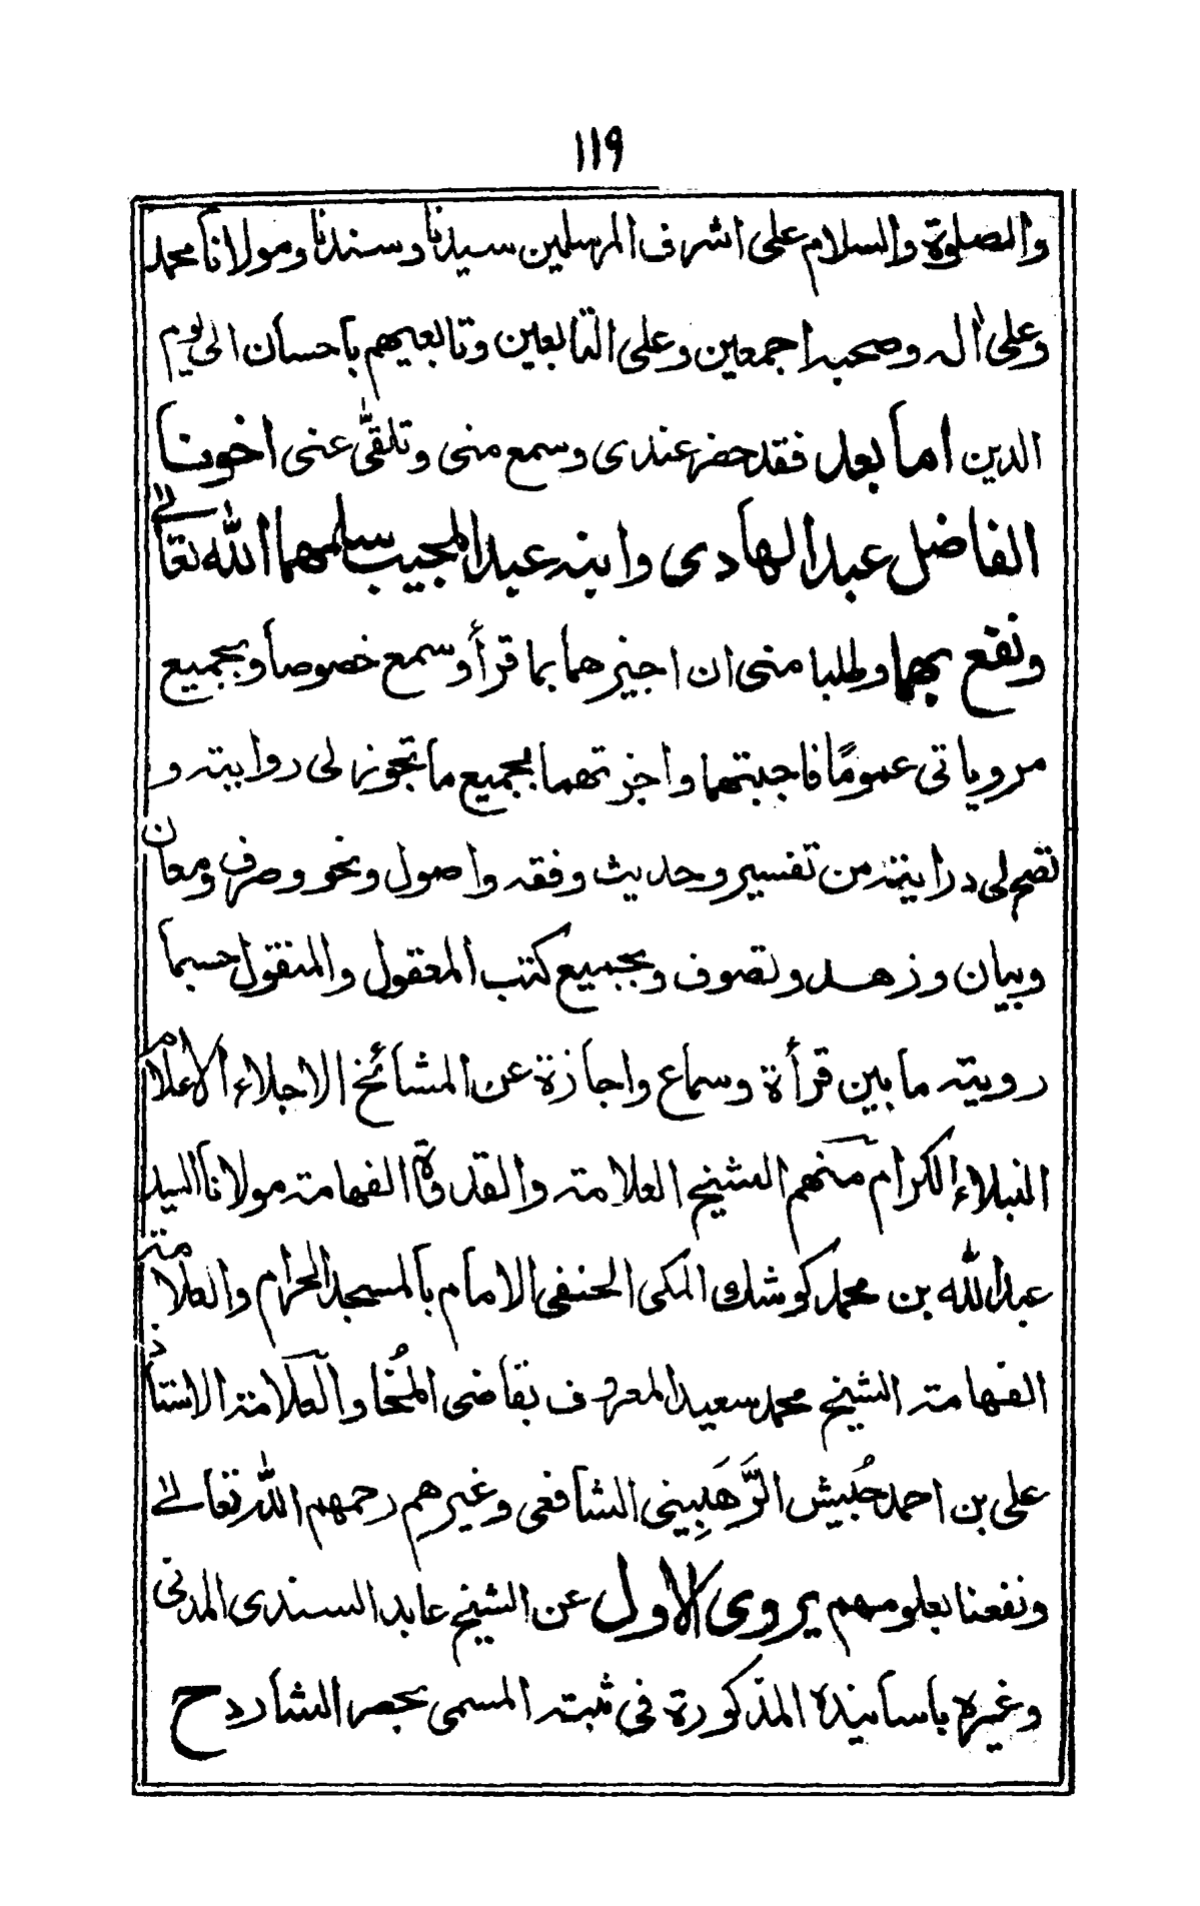 ١١٩
والصلوة والسلام على اشرف المرسلين سيدنا وسندنا ومولانا محمد
وعلى اٰله وصحبه اجمعين وعلى التابعين وتابعيهم باحسان الى يوم
الدين اما بعد فقد حضر عندى وسمع منى وتلقّٰى عنى اخونا
الفاضل عبد الهادى وابنه عبد المجيب سلمهما الله تعالے
ونفع بهما وطلبا منى ان اجيزهما بما قرأ وسمع خصوصا وبجميع
مروياتى عمومًا فاجبتهما واجزتهما بجميع ما تجوز لى روايته و
تصح لى درايته من تفسير وحديث وفقه واصول ونحو وصرف ومعان
وبيان وزهد وتصوف وبجميع كتب المعقول والمنقول حسبما
رويته ما بين قرأة وسماع واجازة عن المشائخ الاجلاء الاعلام
النبلاء الكرام منهم الشيخ العلامة والقدوة الفهامة مولانا السيد
عبد الله بن محمد كوشك المكى الحنفى الامام بالمسجد الحرام والعلامة
الفهامة الشيخ محمد سعيد المعروف بقاضى المُخا والعلامة الاستاذ
على بن احمد حُبيش الرَّهَبِينى الشافعى وغيرهم رحمهم الله تعالے
ونفعنا بعلومهم يروى الاول عن الشيخ عابد السندى المدنى
وغيره باسانيده المذكورة فى ثبته المسمى بحصر الشارد ح